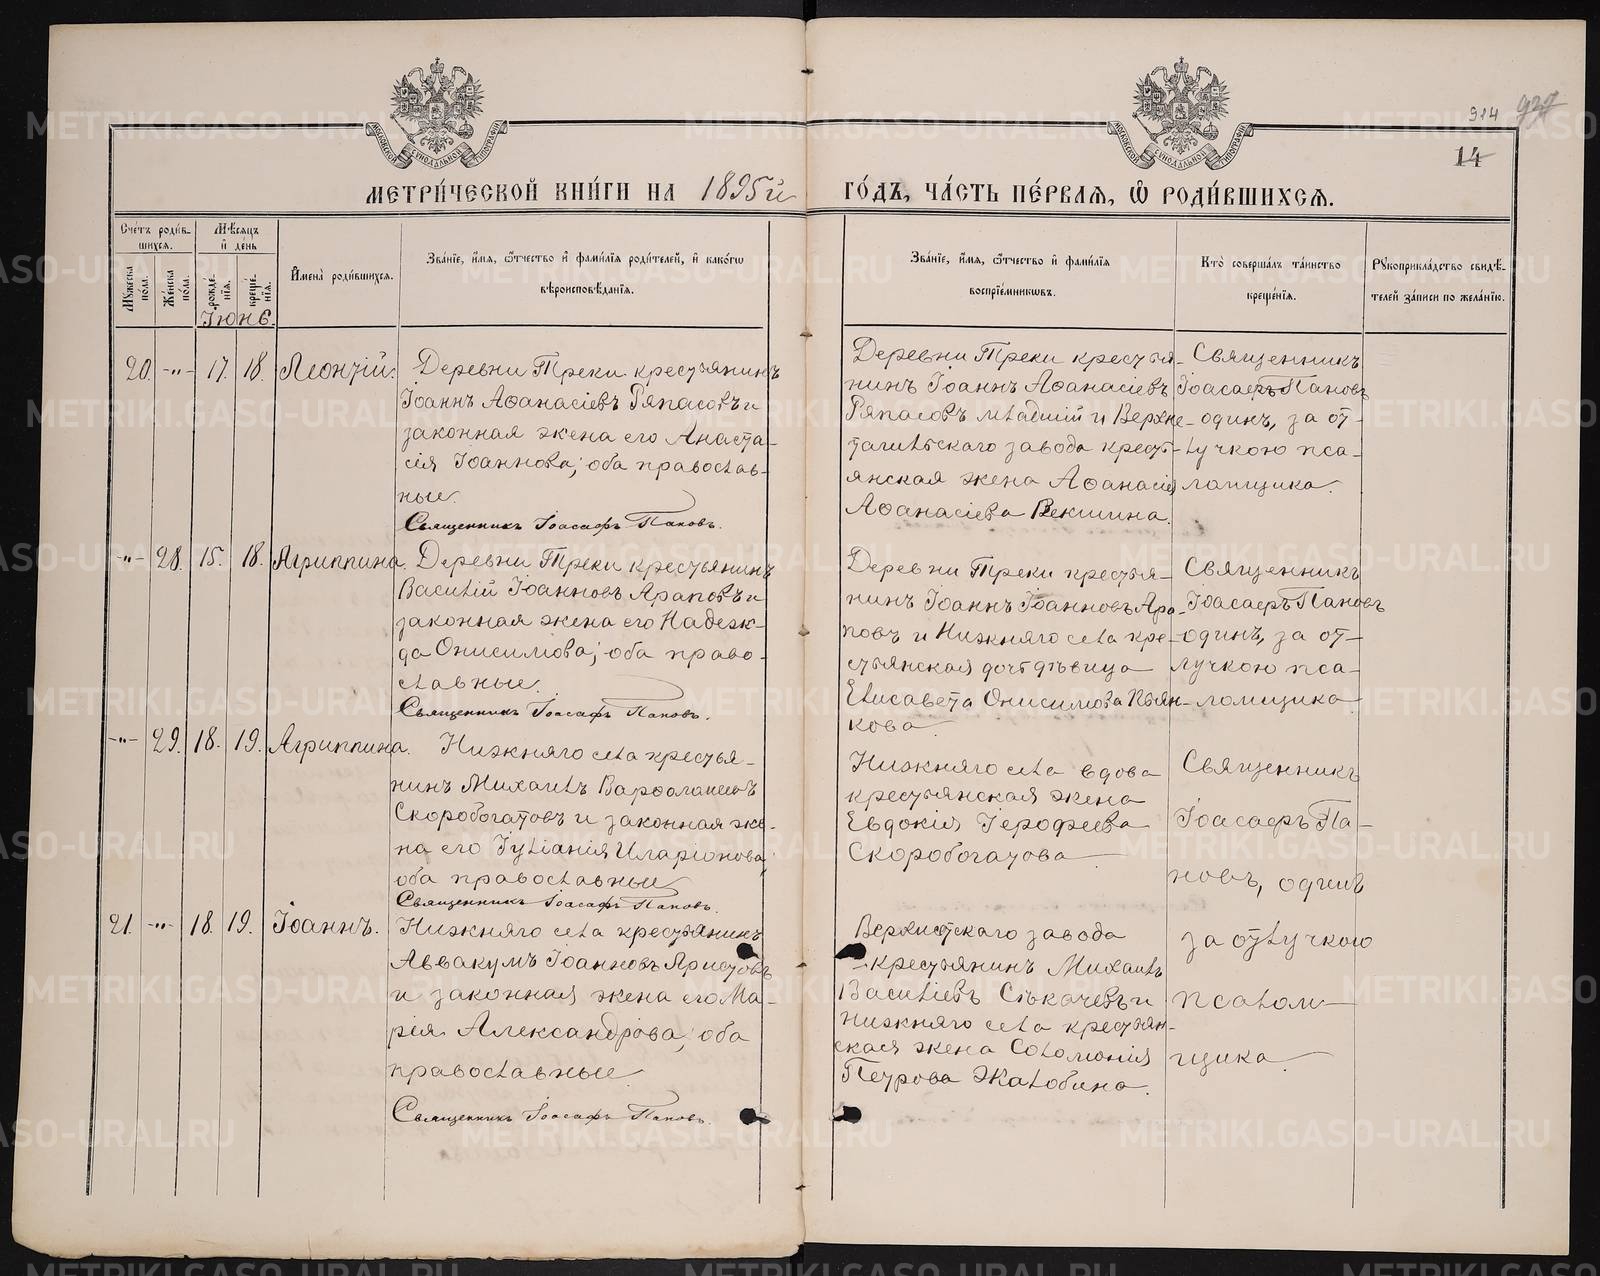 914 927
14
МЕТРИ́ЧЕСКОЙ КНИ́ГИ НА 1895й ГО́ДЪ, ЧА́СТЬ ПЕ́РВАѦ, Ѽ РОДИ́ВШИХСѦ.
Сче́тъ роди́в-
шихсѧ.
Мꙋ́жеска по́ла.
Же́нска по́ла.
Мѣ́сѧцъ
и҆ де́нь
рожде́-
нїѧ.
креще́-
нїѧ.
Іюнь.
И҆мена̀ роди́вшихсѧ.
Зва́нїе, и҆́мѧ, ѻ҆́тчество и҆ фами́лїѧ роди́телей, и҆ како́гѡ
вѣроисповѣ́данїѧ.
Зва́нїе, и҆́мѧ, ѻ҆́тчество и҆ фами́лїѧ
воспрїе́мникѡвъ.
Кто̀ соверша́лъ та́инство
креще́нїѧ.
Рꙋкоприкла́дство свидѣ́-
телей за́писи по жела́нїю.
20. -"- 17. 18. Леонтій.
Деревни Треки крестьянинъ
Іоаннъ Аѳанасіевъ Ряпасовъ и
законная жена его Анаста-
сія Іоаннова; оба православ-
ные.
Священникъ Іоасафъ Пановъ.
Деревни Треки крестья-
нинъ Іоаннъ Аѳанасіевъ
Ряпасовъ младшій и Верхне-
тагильскаго завода кресть-
янская жена Аѳанасія
Аѳанасіева Векшина.
Священникъ
Іоасафъ Пановъ
одинъ, за от-
лучкою пса-
ломщика.
-"- 28. 15. 18. Агриппина.
Деревни Треки крестьянинъ
Василій Іоанновъ Араповъ и
законная жена его Надеж-
да Онисимова; оба право-
славные.
Священникъ Іоасафъ Пановъ.
Деревни Треки крестья-
нинъ Іоаннъ Іоанновъ Ара-
повъ и Нижняго села кре-
стьянская дочь дѣвица
Елисавета Онисимова Пьян-
кова.
Священникъ
Іоасафъ Пановъ
одинъ, за от-
лучкою пса-
ломщика
-"- 29. 18. 19. Агриппина.
Нижняго села крестья-
нинъ Михаилъ Варѳоломеевъ
Скоробогатовъ и законная же-
на его Іуліанія Иларіонова,
оба православные
Священникъ Іоасафъ Пановъ.
Нижняго села вдова
крестьянская жена
Евдокія Іерофеева
Скоробогатова
Священникъ
Іоасафъ Па-
новъ, одинъ
21. -"- 18. 19. Іоаннъ.
Нижняго села крестьянинъ
Аввакумъ Іоанновъ Аристовъ
и законная жена его Ма-
рія Александрова, оба
православные
Священникъ Іоасафъ Пановъ.
завода
крестьянинъ Михаилъ
Василіевъ Сѣкачевъ и
Нижняго села крестьян-
ская жена Соломонія
Петрова Жалобина.
за отлучкою
псалом-
щика